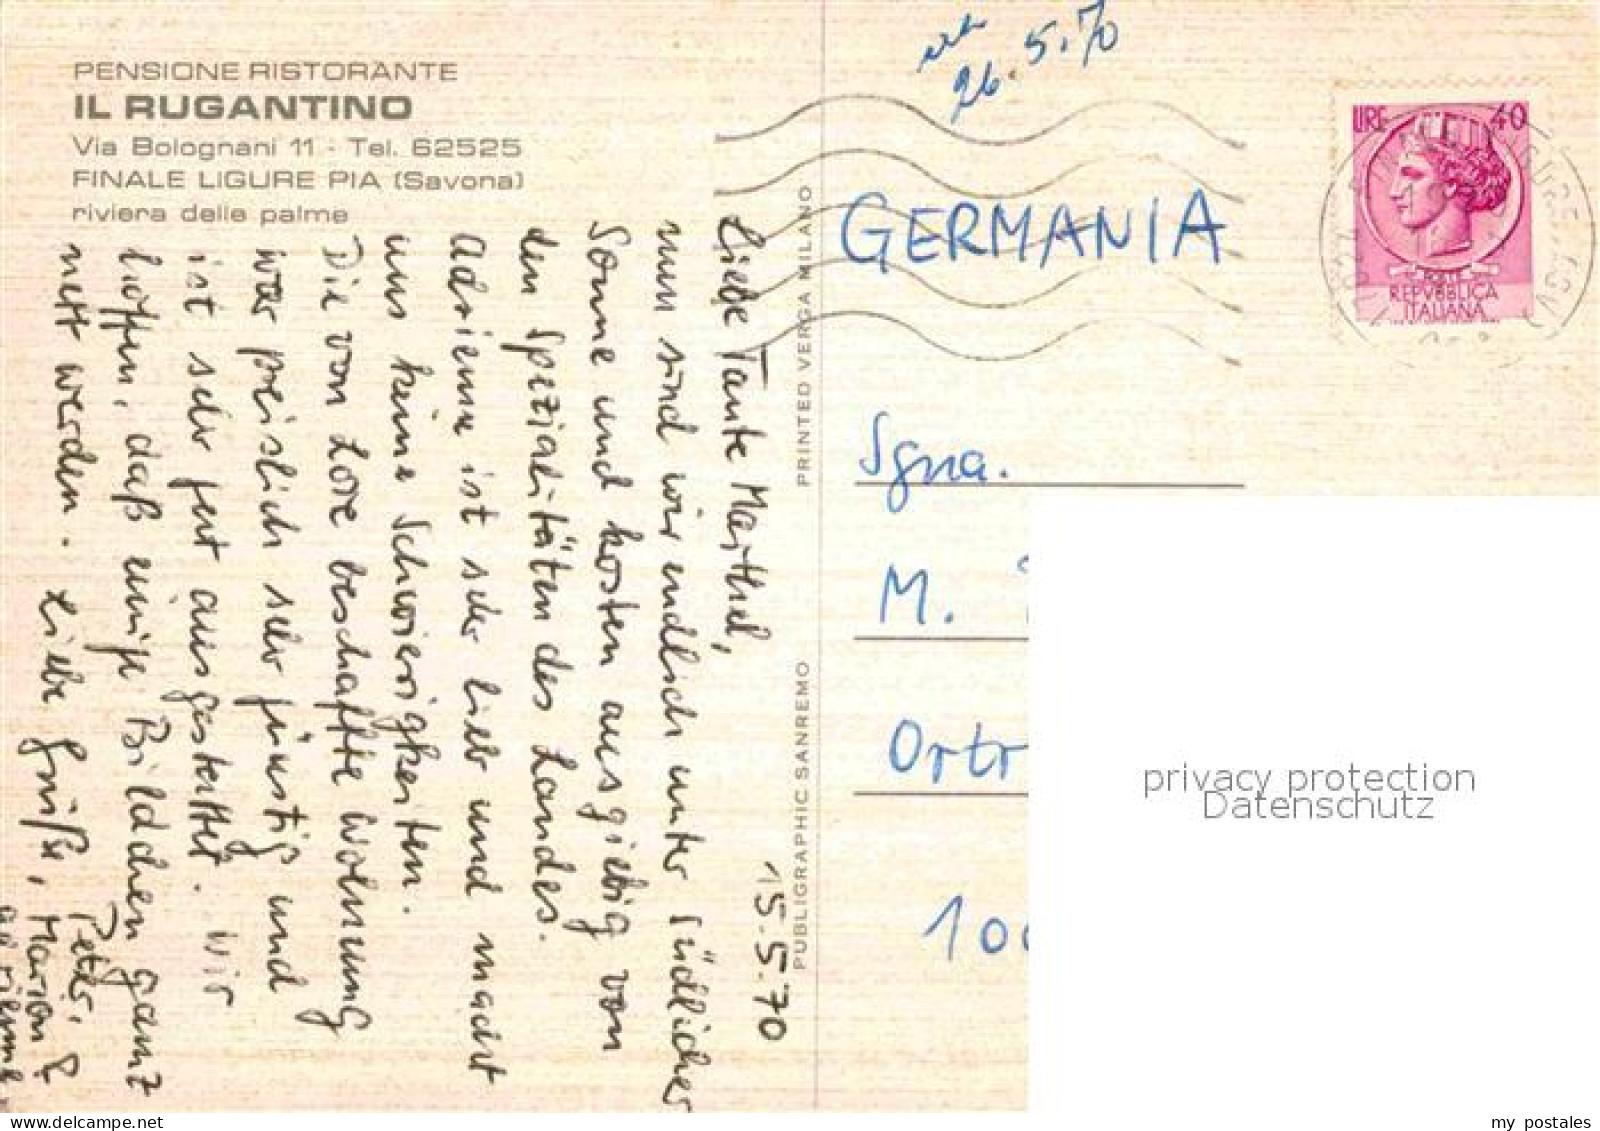 PENSIONE RISTORANTE
IL RUGANTINO
Via Bolognani 11 - Tel. 62525
FINALE LIGURE PIA (Savona)
riviera delle palme
15.5.70
Liebe Tante Marthel,
nun sind wir endlich unter südlicher
Sonne und kosten ausgiebig von
den Spezialitäten des Landes.
Adrienne ist sehr lieb und macht
uns keine Schwierigkeiten.
Die von Lore beschaffte Wohnung
war preislich sehr günstig und
ist sehr gut ausgestattet. Wir
hoffen, daß einige Bildchen ganz
nett werden. Liebe Grüße,
Peter,
Marion &
Adrienne
PRINTED VERGA MILANO
PUBLIGRAPHIC SANREMO
26.5.70
GERMANIA
LIRE 40
POSTE
REPVBBLICA
ITALIANA
FINALE LIGURE
Sgna.
M.
Ortr
100
privacy protection
Datenschutz
my postales